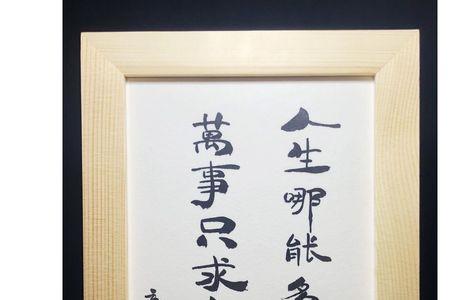 人生哪能多
萬事只求